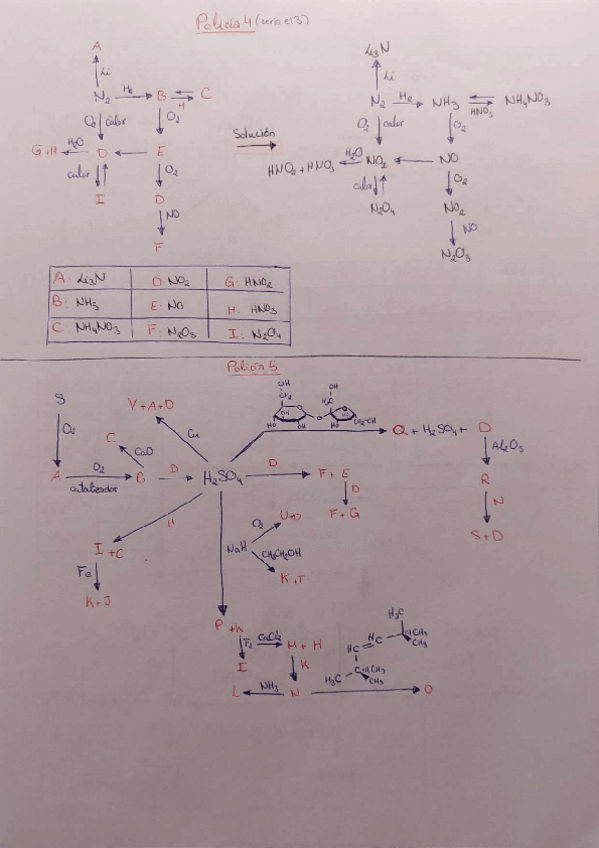 Policía 4 (sería el 3)
A
Li
N₂ H₂ B H C
O₂ calor O₂
G+H H₂O D E
calor O₂
I D
NO
F
Solución
Li₃N
Li
N₂ H₂ NH₃ HNO₃ NH₄NO₃
O₂ calor O₂
HNO₂ + HNO₃ H₂O NO₂ NO
calor O₂
N₂O₄ NO₂
NO
N₂O₃
A: Li₃N D: NO₂ G: HNO₂
B: NH₃ E: NO H: HNO₃
C: NH₄NO₃ F: N₂O₃ I: N₂O₄
Policía 5
S
O₂
A O₂ catalizador B D H₂SO₄ D F + E
C CaO
V+A+D Cu
OH
CH₂
OH
HO OH
O
HO
OH
Q + H₂SO₄ + D
Al₂O₃
R
N
S+D
D
F+G
H
I + C
Fe
K+J
NaH
O₂ U+D
CH₃CH₂OH
K+T
P+K
F₂ CaCl₂ M + H
I K
L NH₃ N O
H₃C
CH₃
CH₃
HC
HC
H₃C C CH₃
CH₃